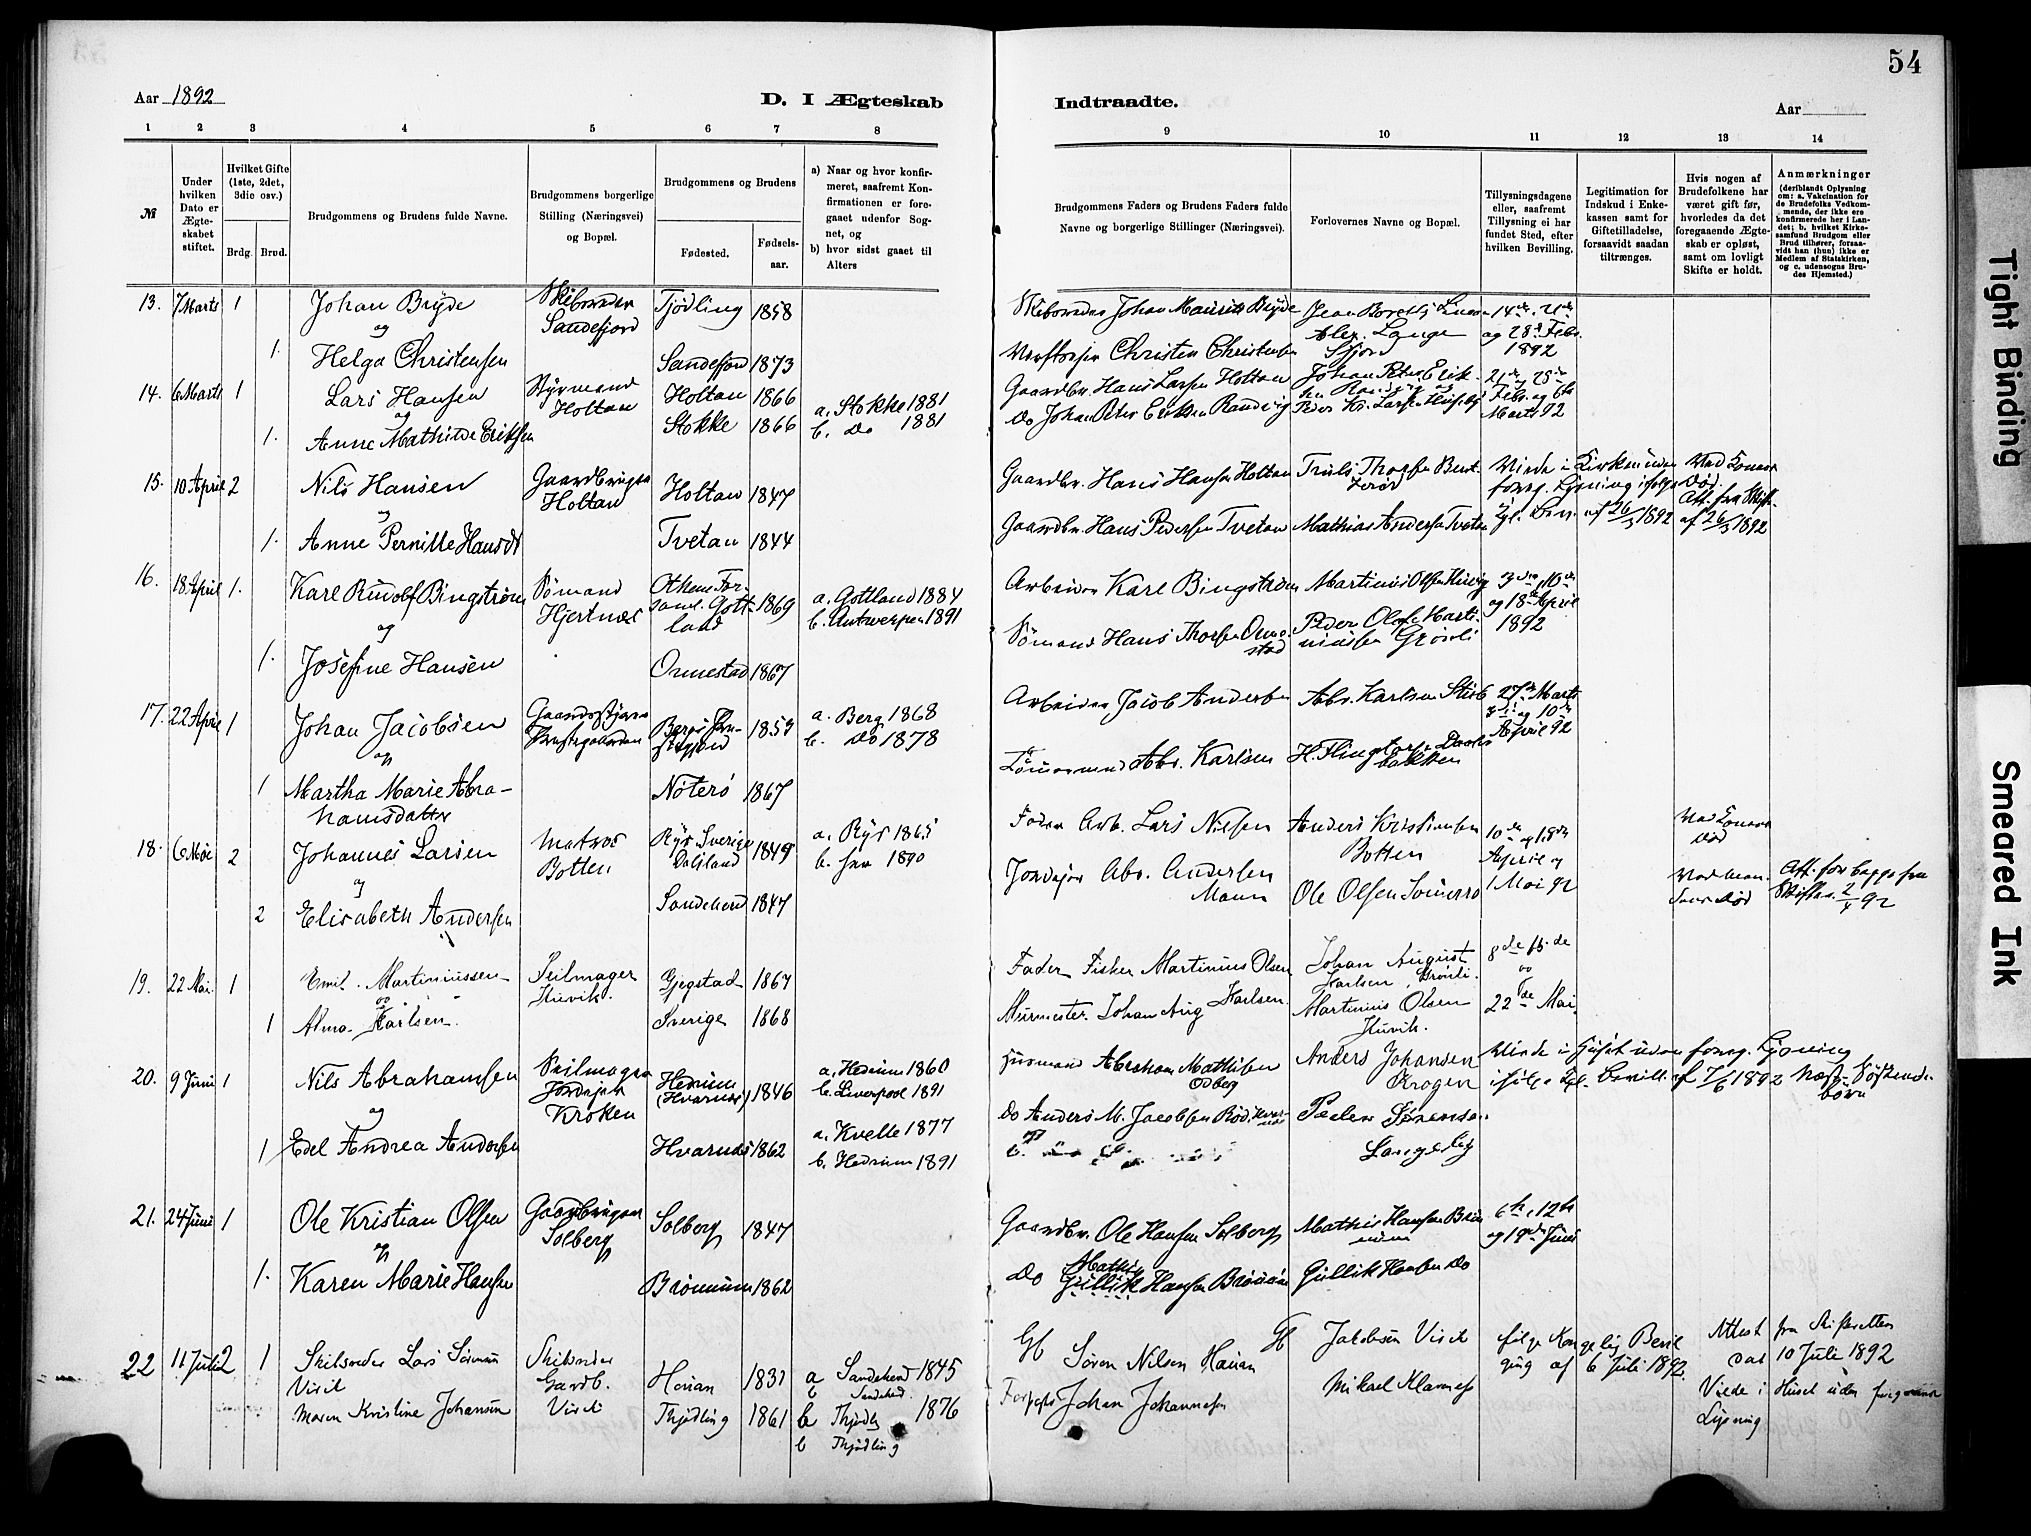 54
Aar 1892
D. I Ægteskab
Indtraadte.
Aar
1 2 3 4 5 6 7 8
9 10 11 12 13 14
№
Under hvilken Dato er Ægteskabet stiftet.
Hvilket Gifte (1ste, 2det, 3die osv.)
Brdg. Brud.
Brudgommens og Brudens fulde Navne.
Brudgommens borgerlige Stilling (Næringsvei) og Bopæl.
Brudgommens og Brudens
Fødested.
Fødselsaar.
a) Naar og hvor konfirmeret, saafremt Konfirmationen er foregaaet udenfor Sognet, og
b) hvor sidst gaaet til Alters
Brudgommens Faders og Brudens Faders fulde Navne og borgerlige Stillinger (Næringsvei).
Forlovernes Navne og Bopæl.
Tillysningsdagene eller, saafremt Tillysning ei har fundet Sted, efter hvilken Bevilling.
Legitimation for Indskud i Enkekassen samt for Giftetilladelse, forsaavidt saadan tiltrænges.
Hvis nogen af Brudefolkene har været gift før, hvorledes da det foregaaende Ægteskab er opløst, samt om lovligt Skifte er holdt.
Anmærkninger
(deriblandt Oplysning om: a. Vakcination for de Brudefolks Vedkommende, der ikke ere konfirmerede her i Landet; b. hvilket Kirkesamfund Brudgom eller Brud tilhører, forsaavidt han (hun) ikke er Medlem af Statskirken, og c. udensogns Brudes Hjemsted.)
13. 7 Marts 1 Johan Bryde Skibsreder Sandefjord Tjödling 1858
og
1. Helga Christensen Sandefjord 1873
Skibsreder Johan Mauritz Bryde
Christen Christensen
Alex. Lange
14de, 21de
og 28de Febr.
1892
14. 6 Marts 1 Lars Hansen Styrmand Holtan Holtan 1866
og
1. Anne Mathilde Eriksen Stokke 1866 a. Stokke 1881
b. Do 1881
Gaardbr. Hans Larsen Holtan
Do Johan Peter Eriksen Randvig
Johan Peter Erik-
sen Randvig og
Peder Kr. Larsen
21de og 28de
Febr. og 6te
Marts 92
15. 10 April 2 Nils Hansen Gaardbruger Holtan Holtan 1847
og
1. Anne Pernille Hansdt Tvetan 1844
Gaardbr. Hans Hansen Holtan
Gaardbr. Hans Pedersen Tvetan
Truls Thorsen
Mathias Andersen Tvetan
Viede i Kirken uden
foreg. Lysning ifølge
Kgl. Bev. af 26/3 1892
Ved Konens
Død.
Att. fra Skift.
af 26/3 1892
16. 18 April 1. Karl Rudolf Bingström Sömand Hjertnes
Gottland 1869 a. Gottland 1884
b. Antwerpen 1891
og
1. Josefine Hansen Ormestad 1867
Arbeider Karl Bingström
Sömand Hans Thorsen Ormestad
Martinius Olsen
Peder Olsen Marti-
niusen
3die, 10de
og 18de April
1892
17. 22 April 1 Johan Jacobsen 1854 a. Berg 1868
b. Do 1878
og
1 Martha Marie Abra-
hamsdatter Nöterö 1867
Arbeider Jacob Andersen
Tömmermand Abr. Karlsen
Abr. Karlsen
27de Marts
3die og 10de
April 92
18. 6 Mai 2 Johannes Larsen Matros Botten Ryr Sverige
Dalsland 1849 a. Ryr 1865
b. her 1890
og
2 Elisabeth Andersen Sandeherred 1847
Fader Arb. Lars Nilsen
Jordejer Abr. Andersen
Anders Kristiansen
Botten
Ole Olsen
10de og 18de
April og
1 Mai 92
Ved Konens
Død
Ved Man-
dens Død
Att. for begge fra
Skifter. 2/4 92
19. 22 Mai. 1 Emil Martiniussen Seilmager
Huvik. Gjegstad 1867
og
1 Alma Karlsen. Sverige 1868
Fader Fisker Martinius Olsen
Murmester Johan Aug Karlsen.
Johan August
Karlsen,
Martinius Olsen
Huvik.
8de 15de
og
22de Mai.
20. 9 Juni 1 Nils Abrahamsen Seilmager
Jordejer
Kroken Hedrum
(Hvarnes) 1846 a. Hedrum 1860
b. Liverpool 1891
og
1 Edel Andrea Andersen Hvarnes 1862 a. Kvelle 1877
b. Hedrum 1891
Husmand Abraham Mathisen
Do Anders M. Jacobsen
Anders Johansen
Krogen
Peder Sörensen
Viede i Huset uden foreg. Lysning
ifölge Kgl. Bevill. af 7/6 1892 Næst-Söskende-
börn
21. 24 Juni 1 Ole Kristian Olsen Gaardbruger
Solberg Solberg 1847
og
1. Karen Marie Hansen Brönnum 1862
Gaardbr. Ole Hansen Solberg
Mathis
Do Gullik Hansen Brönnum
Mathis Hansen Brön-
num
Gullik Hansen Do
5te, 12te
og 19de Juni
22 11 Juli 2 1 Skibsreder Lars Sörensen
Virik
Maren Kristine Johansen
Skibsreder
Gardb.
Virik
Hasian 1831 a Sandeherd 1845
b Sandehed.
Thjødling 1861 a Thjødlg 1876
b Thjødling
Søren Nilsen Hasian
Johan Johannesen
Jakobsen Virik
Mikael Klavnes
ifølge Kongelig Bevil
ging af 6 Juli 1892.
Attest fra Skifteretten
dat 10 Juli 1892
Viede i Huset uden foregaaende
Lysning
Tight Binding
Smeared Ink